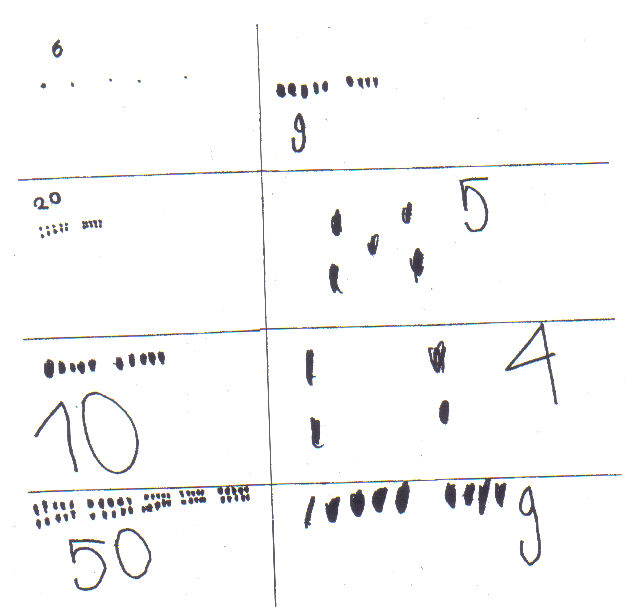 6
9
20
5
10
4
50
9